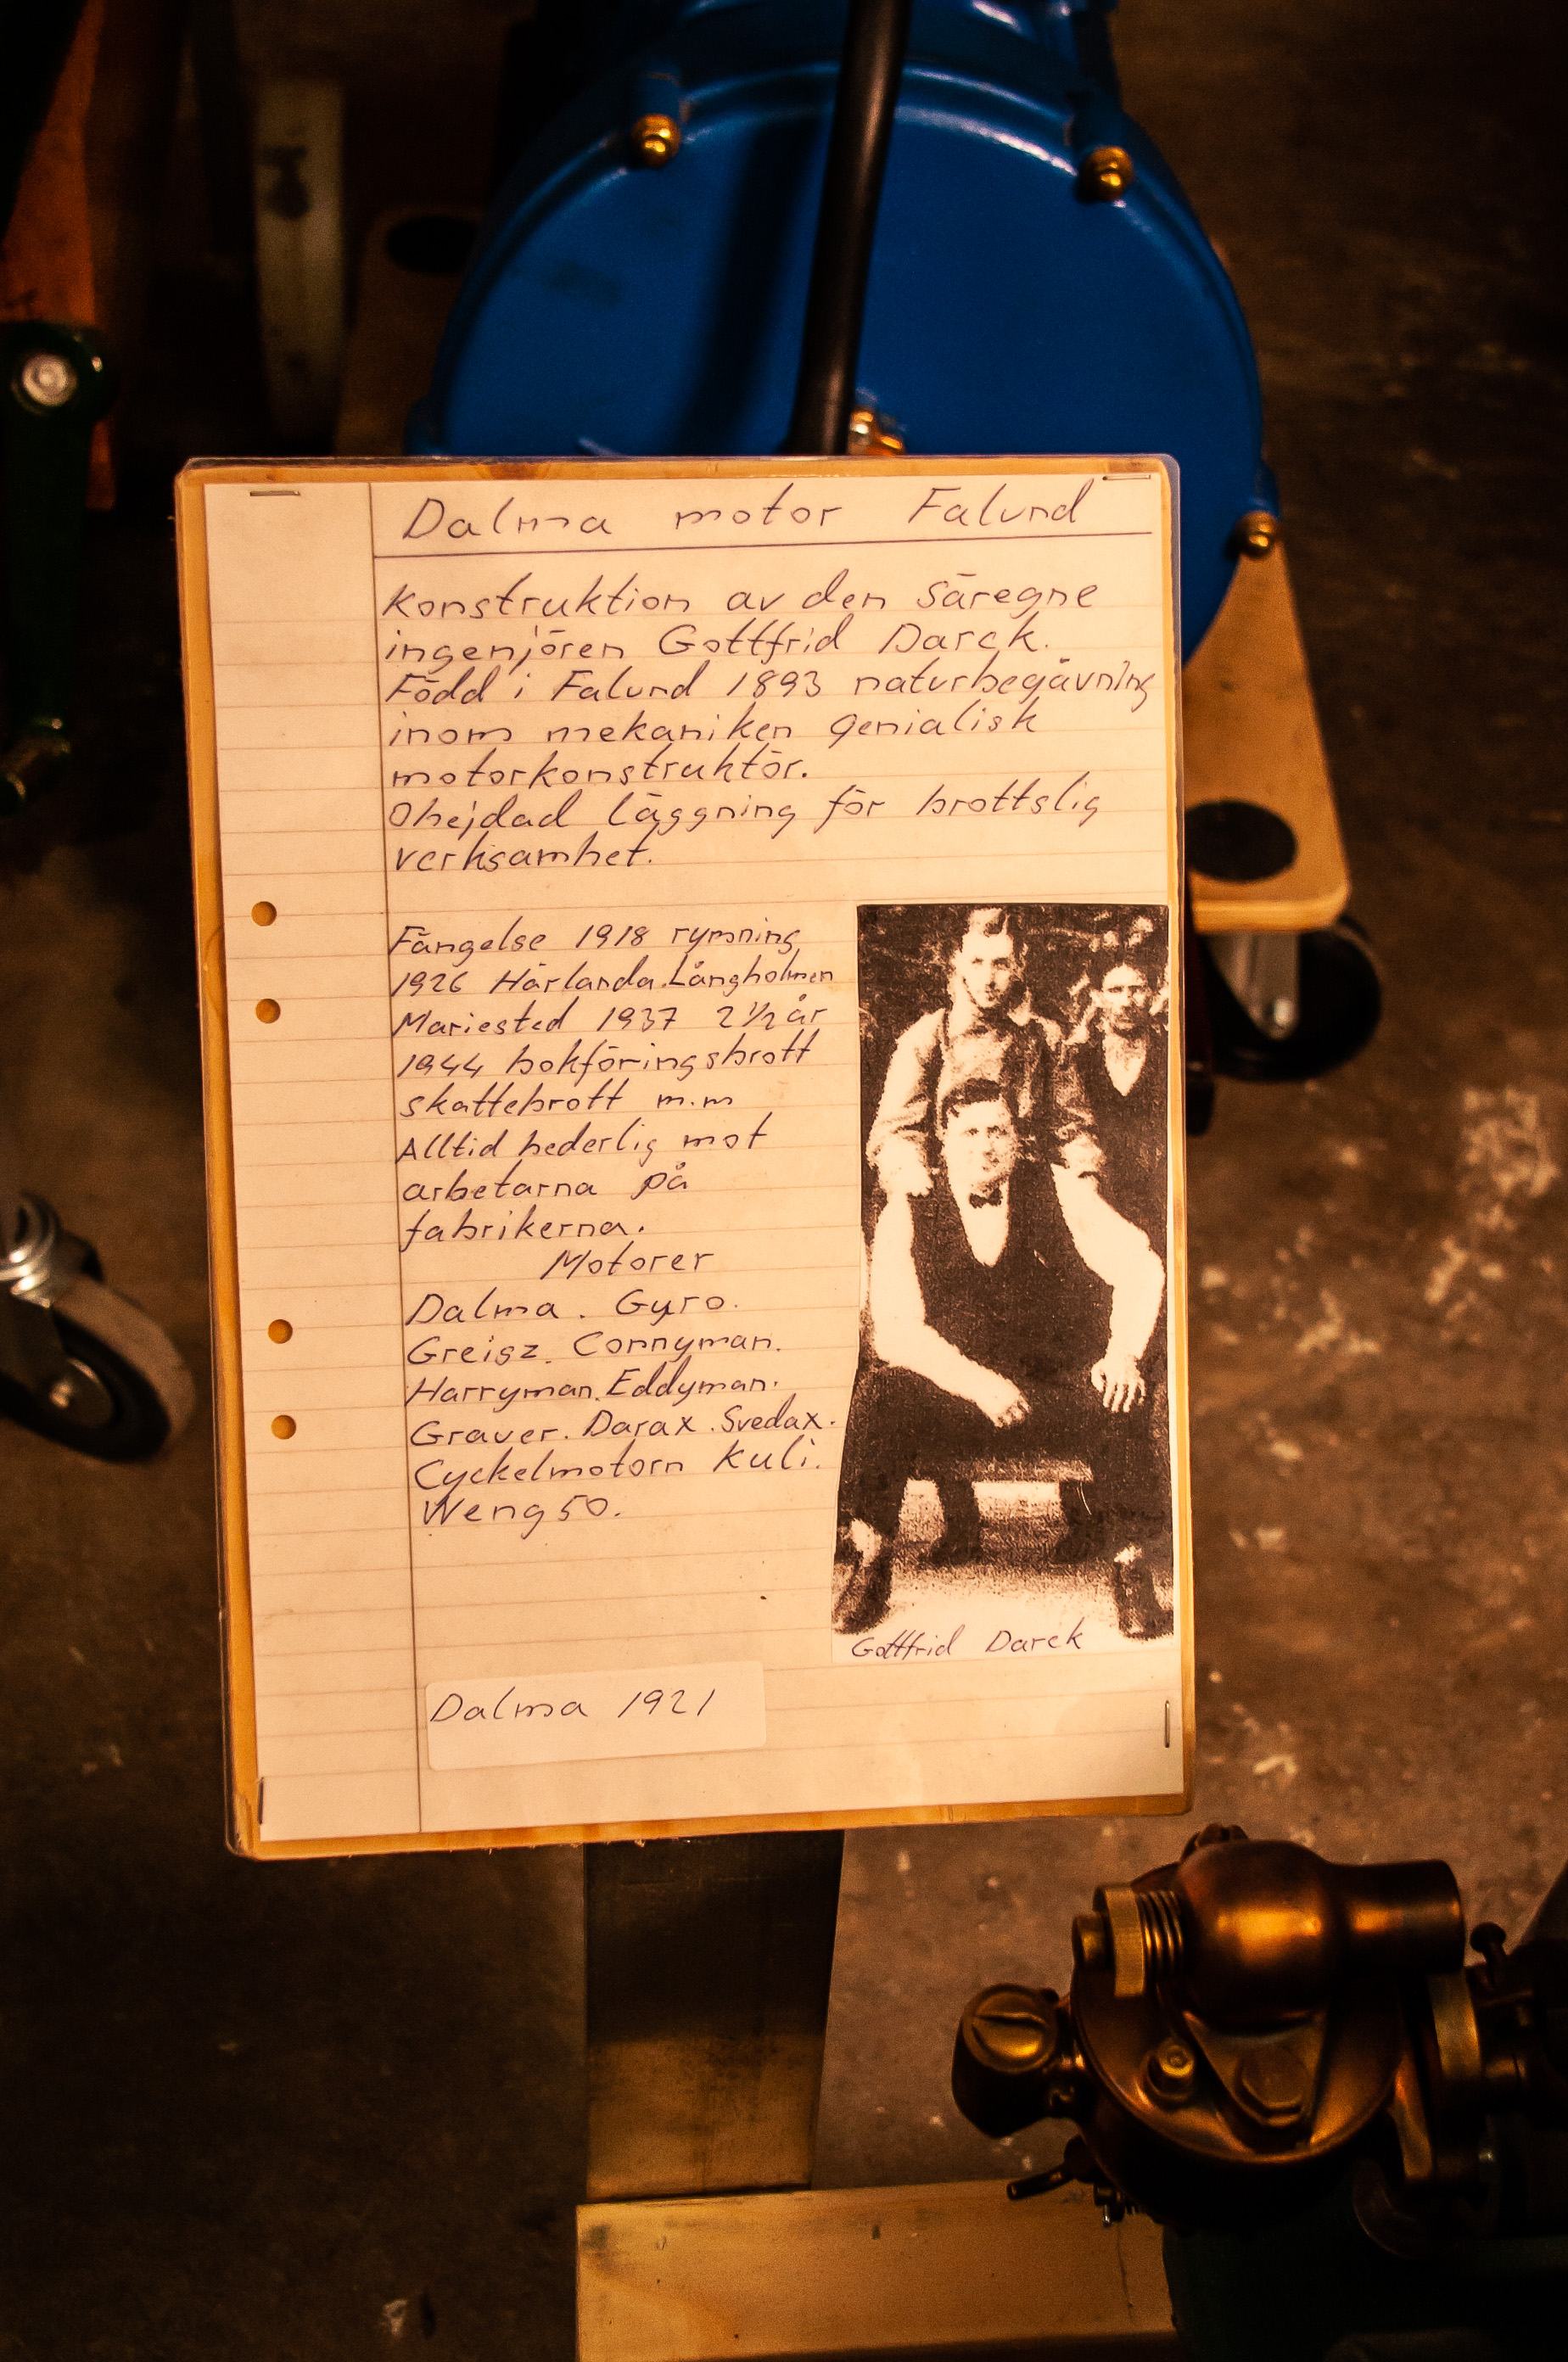 Dalma motor Falund
Konstruktion av den säregne
ingenjören Gottfrid Darck.
Född i Falund 1893 naturbegåvning
inom mekaniken genialisk
motorkonstruktör.
Ohejdad läggning för brottslig
verksamhet.
Fängelse 1918 rymning
1926 Härlanda.Långholmen
Mariested 1937 2 1/2 år
1944 bokföringsbrott
skattebrott m.m
Alltid hederlig mot
arbetarna på
fabrikerna.
Motorer
Dalma. Gyro.
Greisz. Connyman.
Harryman. Eddyman.
Graver. Darax. Svedax.
Cyckelmotorn Kuli.
Weng 50.
Gottfrid Darck
Dalma 1921